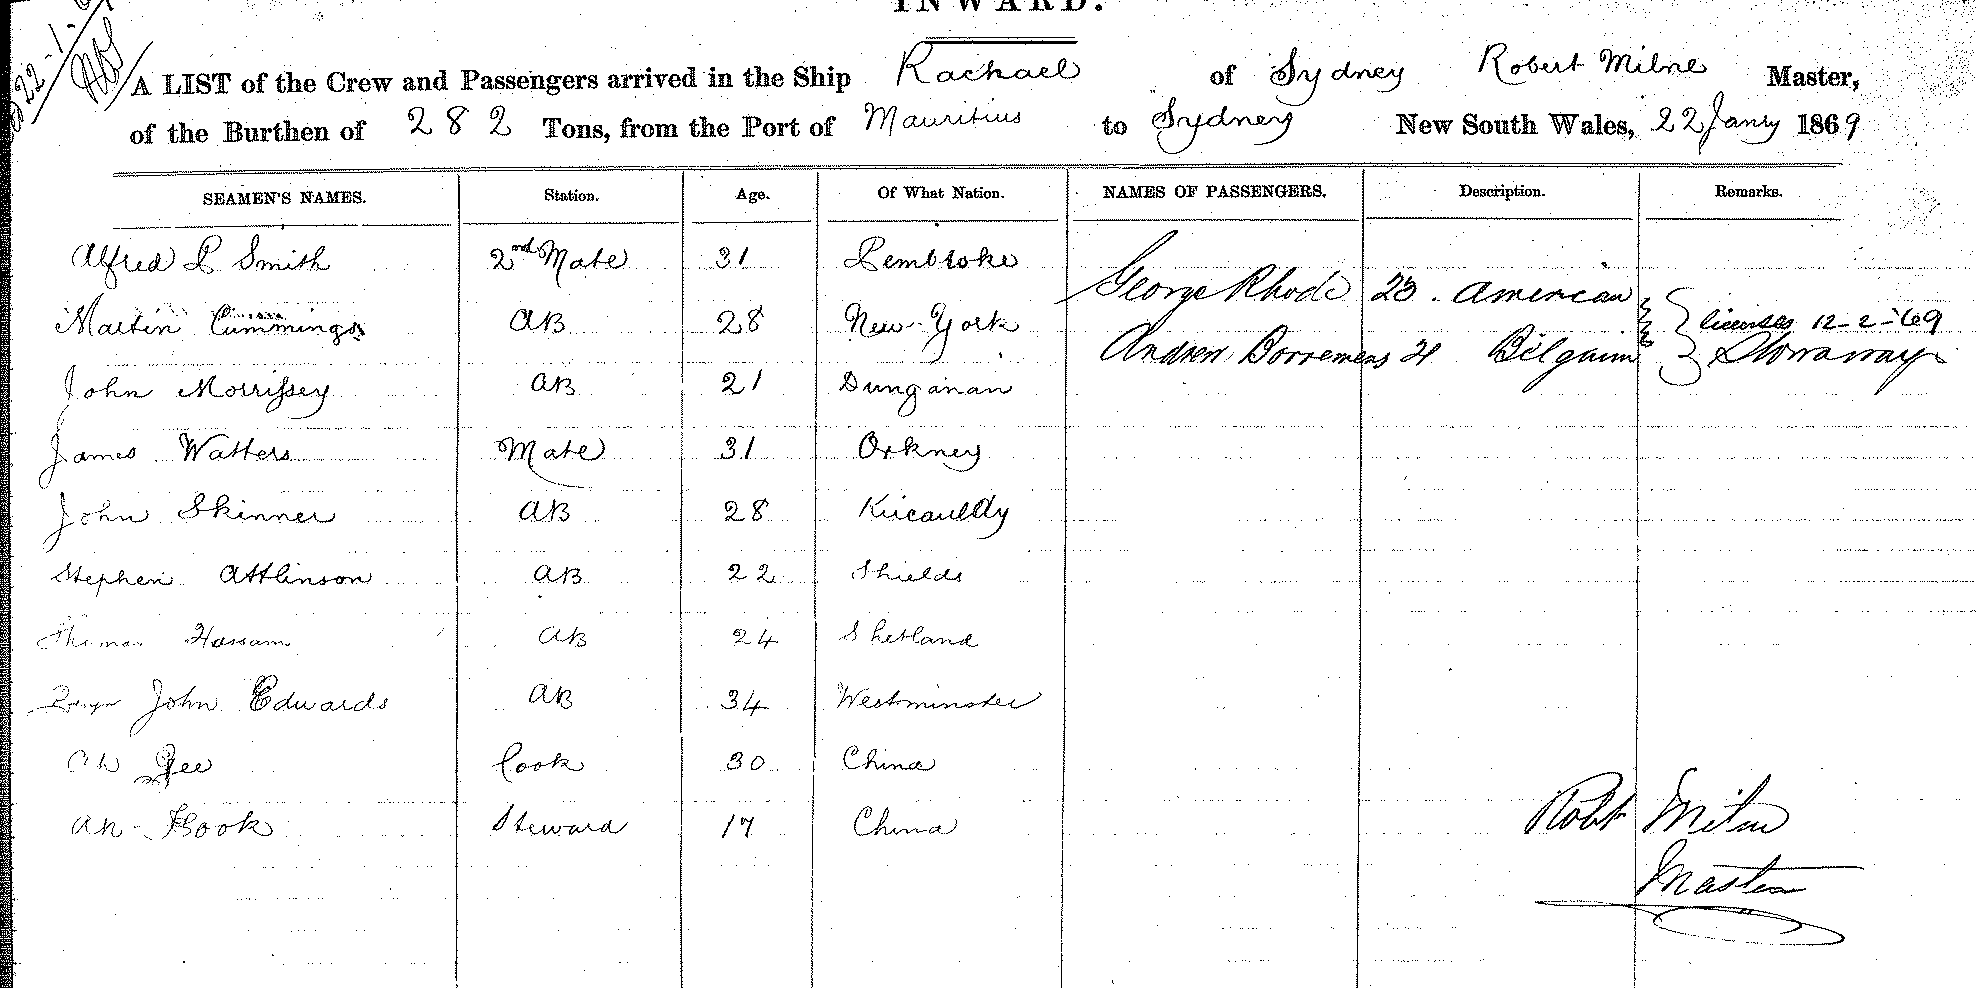 INWARD.
22-1-
A LIST of the Crew and Passengers arrived in the Ship Rachael of Sydney Robert Milne Master,
of the Burthen of 282 Tons, from the Port of Mauritius to Sydney New South Wales, 22 Jany 1869
SEAMEN'S NAMES. Station. Age. Of What Nation. NAMES OF PASSENGERS. Description. Remarks.
Alfred P Smith 2nd Mate 31 Pembroke
George Rhode 23. American
Martin Cummings AB 28 New-York
licenses 12-2-69
Andrew Borremens 21 Bilgium Stowaways
John Morrissey AB 21 Dunganan
James Watters Mate 31 Orkney
John Skinner AB 28 Kircauldy
Stephen Attlinson AB 22 Shields
Thomas Hassam AB 24 Shetland
John Edwards AB 34 Westminster
Ah Gee Cook 30 China
Ah-Kook Steward 17 China
Robt Milne
Master